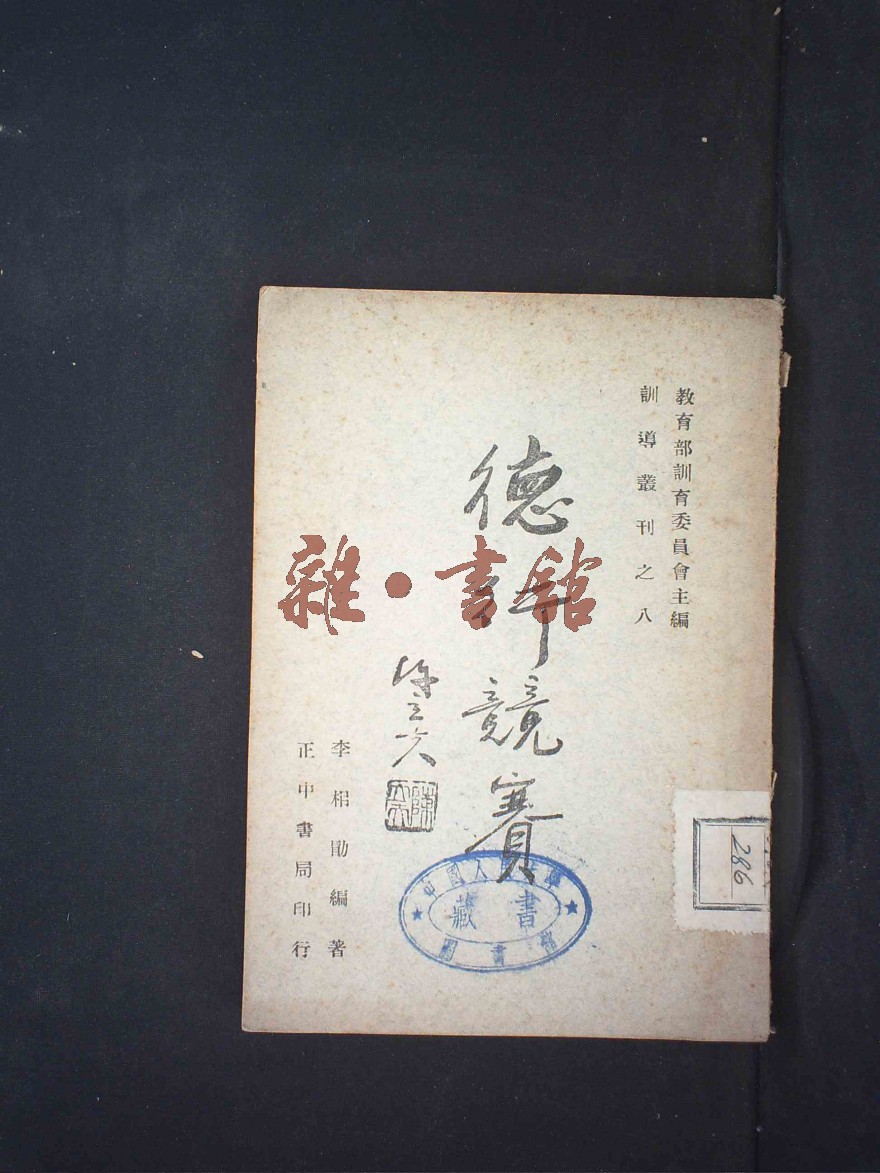 教育部訓育委員會主編
訓導叢刊之八
德行競賽
陳立夫
李相勖編著
正中書局印行
雜·書館
中國人民大學
藏書
圖書館
286